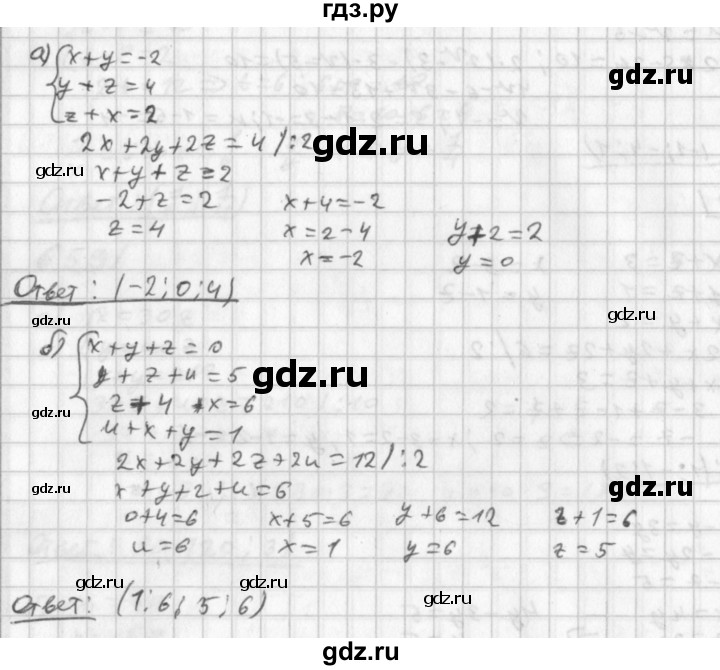 гдз.ру
а) { x + y = -2
y + z = 4
z + x = 2
gdz.ru
2x + 2y + 2z = 4 / : 2
gdz.ru
x + y + z = 2
gdz.ru
-2 + z = 2 x + 4 = -2
z = 4 x = 2 - 4 y + 2 = 2
x = -2 y = 0
Ответ: (-2; 0; 4)
gdz.ru gdz.ru
б) { x + y + z = 0
y + z + u = 5
gdz.ru
z + 4 + x = 6
gdz.ru
u + x + y = 1
2x + 2y + 2z + 2u = 12 / : 2
gdz.ru gdz.ru
x + y + z + u = 6
0 + 4 = 6 x + 5 = 6 y + 6 = 12 z + 1 = 6
u = 6 x = 1 y = 6 z = 5
gdz.ru gdz.ru
Ответ: (1; 6; 5; 6)
gdz.ru gdz.ru
gdz.ru